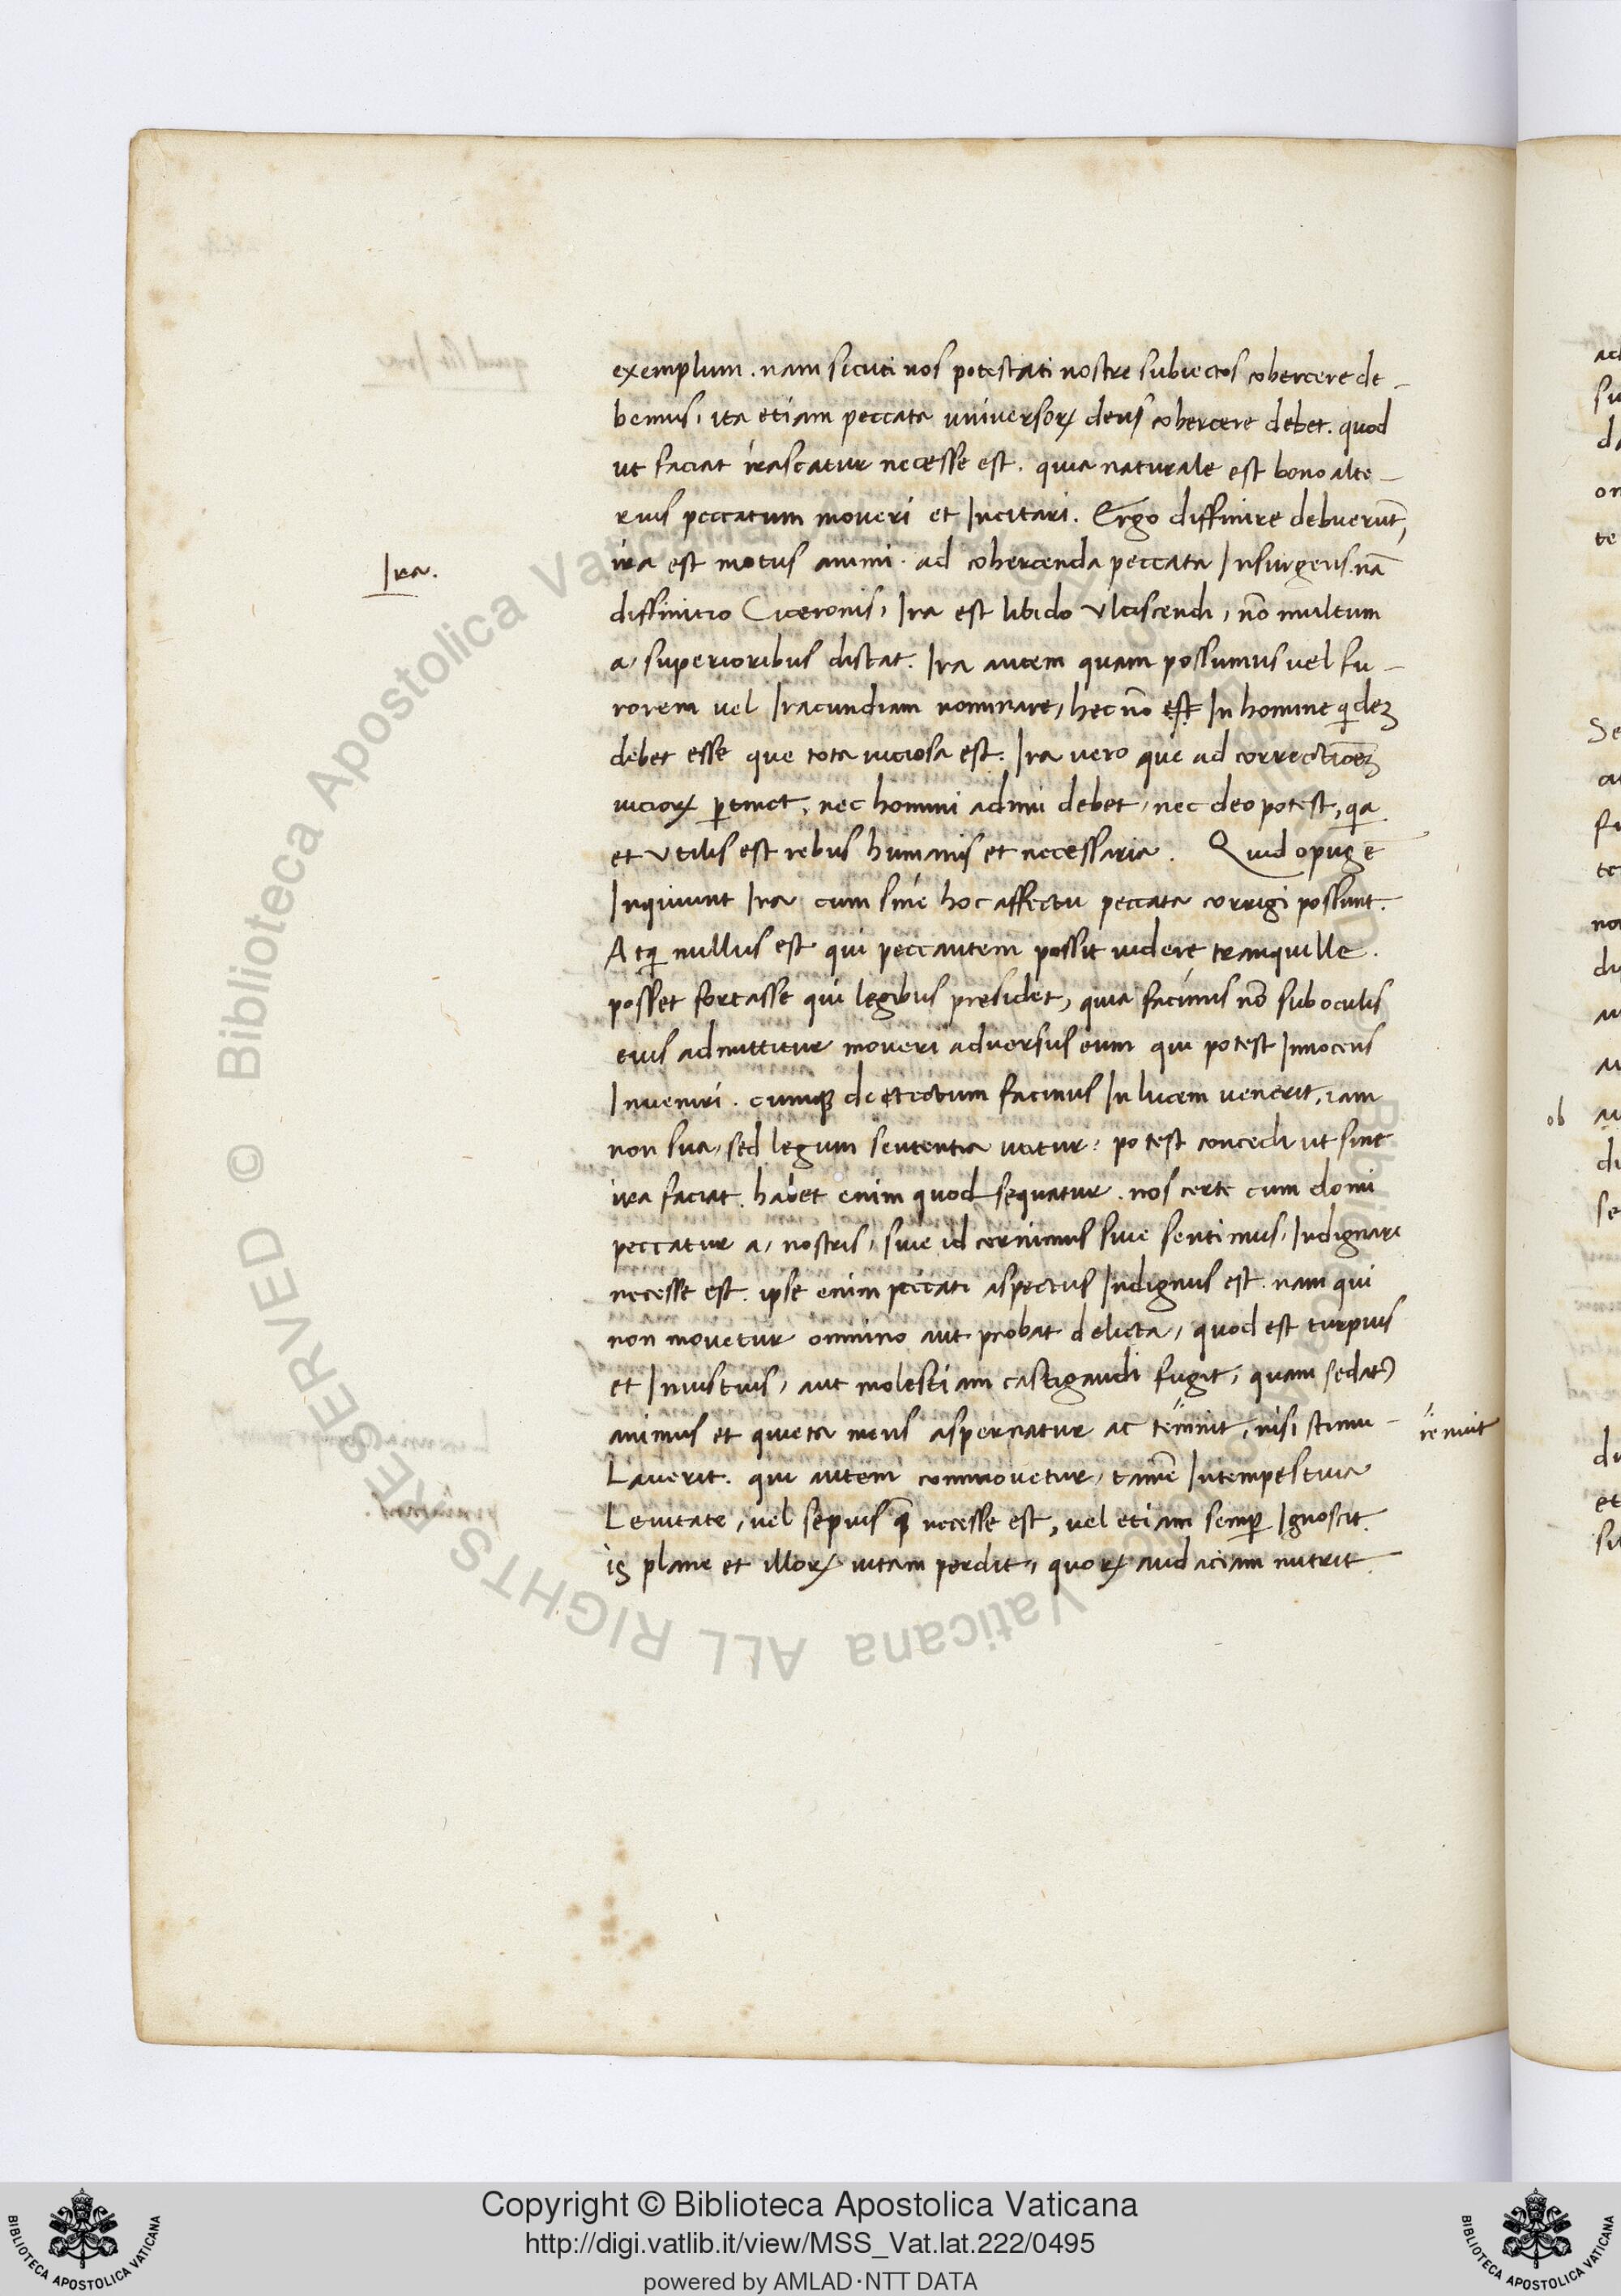 exemplum. nam sicuti nos potestati nostre subiectos cohercere de-
bemus, ita etiam peccata universorꝝ deus cohercere debet. quod
ut faciat irascatur necesse est. quia naturale est bono alte-
rius peccatum moveri et Incitari. Ergo diffinire debuerūt,
Ira.
ira est motus animi. ad cohercenda peccata Insurgens. nā
diffinitio Ciceronis, Ira est libido Ulciscendi, nō multum
a, superioribus distat. Ira autem quam possumus vel fu-
rorem vel Iracundiam nominare, hec nō est In homine qidez
debet esse que tota viciosa est. Ira vero que ad correctiōez
viciorꝝ ꝑtinet, nec homini adimi debet, nec deo potest, qa
et Utilis est rebus humanis et necessaria. Quid opus ē
Inquiunt Ira cum sine hoc affectu peccata corrigi possunt.
Atq nullus est qui peccantem possit videre tranquille.
posset fortasse qui legibus presidet, quia facinus nō sub oculis
eius admittitur moveri adversus eum qui potest Innocens
Inveniri. cumqꝫ detectum facinus In lucem venerit, iam
non sua, sed legum sententia utitur, potest concedi ut sine
ira faciat. habet enim quod sequatur. nos certe cum domi
peccatur a, nostris, sive id cernimus sive sentimus, Indignari
necesse est. ipse enim peccati aspectus Indignus est. nam qui
non movetur omnino aut probat delicta, quod est turpius
et Iniustius, aut molestiam castigandi fugit, quam sedatꝰ
animus et quieta mens aspernatur ac temnit, nisi stimu-
Laverit. qui autem commovetur, tamē Intempestiva
Levitate, vel sepius q̄ necesse est, vel etiam semꝑ Ignoscit.
is plane et illorꝝ vitam perdit, quorꝝ audaciam nutrit
ob
Copyright © Biblioteca Apostolica Vaticana
http://digi.vatlib.it/view/MSS_Vat.lat.222/0495
powered by AMLAD·NTT DATA
BIBLIOTECA APOSTOLICA VATICANA
BIBLIOTECA APOSTOLICA VATICANA
© Biblioteca Apostolica Vaticana ALL RIGHTS RESERVED